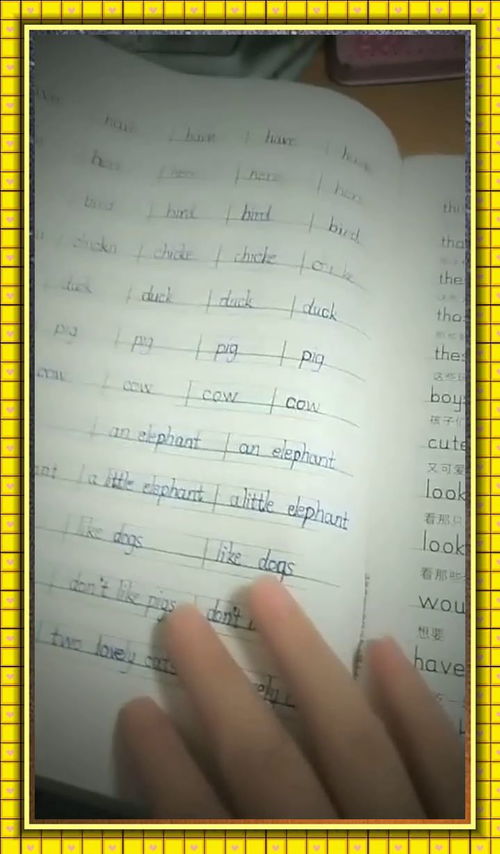 have have have
here here here here
bird bird bird bird
chicken chicke chicke
duck duck duck duck
pig pig pig pig
cow cow cow cow
an elephant an elephant
a little elephant a little elephant
like dogs like dogs
don't like pigs don't
two lovely cats
the
boy
孩子们
cute
又可爱
look
看那只
look
看那些
wou
想要
have